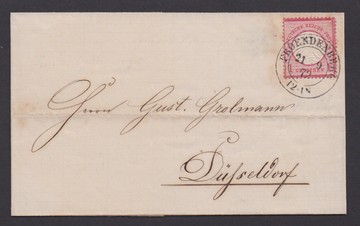 FROENDENBERG
21 9
72
12-1N
Herrn Gust. Grolmann
Düsseldorf